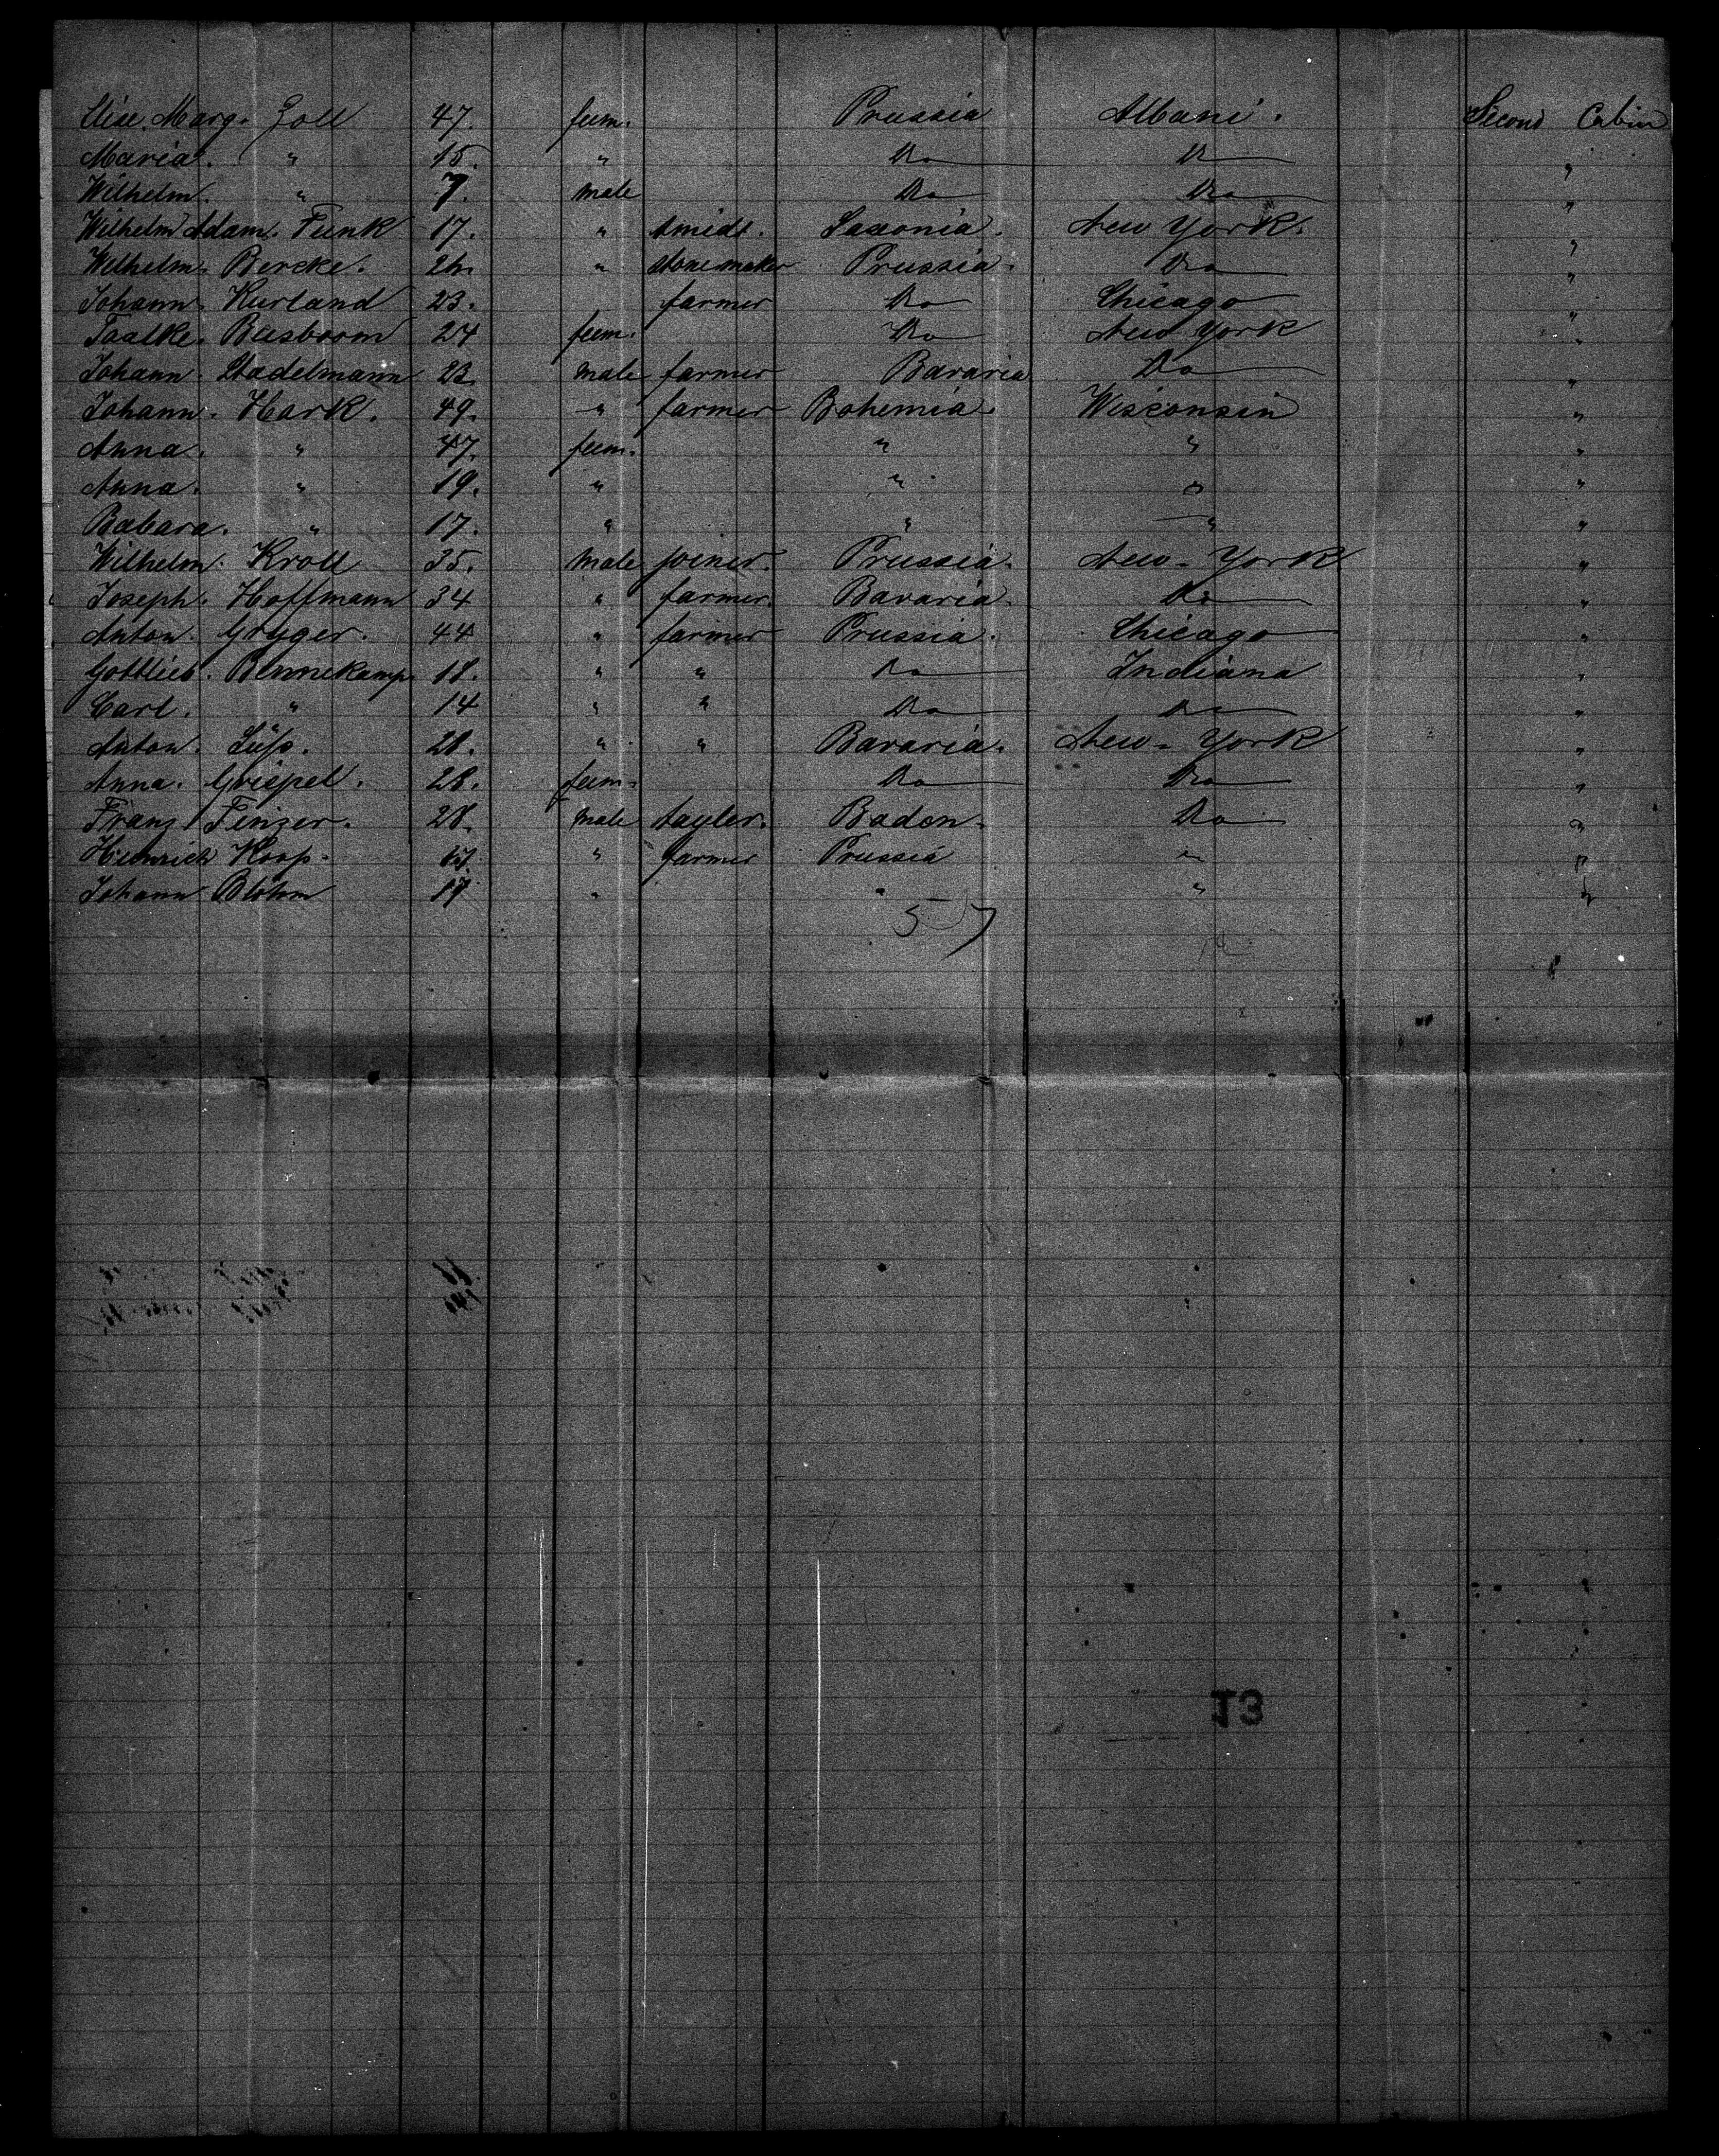 Elise. Marg. Zoll 47. fem. Prussia Albani. Second Cabin
Maria. " 15. " Do Do "
Wilhelm. " 7. male Do Do "
Wilhelm Adam. Funk 17. " smidt. Saxonia. New York. "
Wilhelm. Bercke. " Prussia. Do "
Johann. Kurland 23. farmer Do Chicago "
Taalke. Busboom 24 fem. Do New York "
Johann. Stadelmann 23. male farmer Bavaria Do "
Johann. Hark. 49. " farmer Bohemia. Wisconsin "
Anna. " 47. fem. " " "
Anna. " 19. " " " "
Babara. " 17. " " " "
Wilhelm. Kroll 35. male joiner. Prussia. New-York "
Joseph. Hoffmann 34 " farmer. Bavaria. Do "
Anton. Gryger. 44 " farmer Prussia. Chicago "
Gottlieb. Bennekamp. 18. " " Do Indiana "
Carl. " 14 " " Do Do "
Anton. Süß. 28. " " Bavaria. New-York "
Anna. Griepel. 28. fem. Do Do "
Franz Finzer. 28. male tayler. Baden. Do "
Heinrich Koop. " farmer Prussia " "
Johann Blohm 17 " " " "
507
13